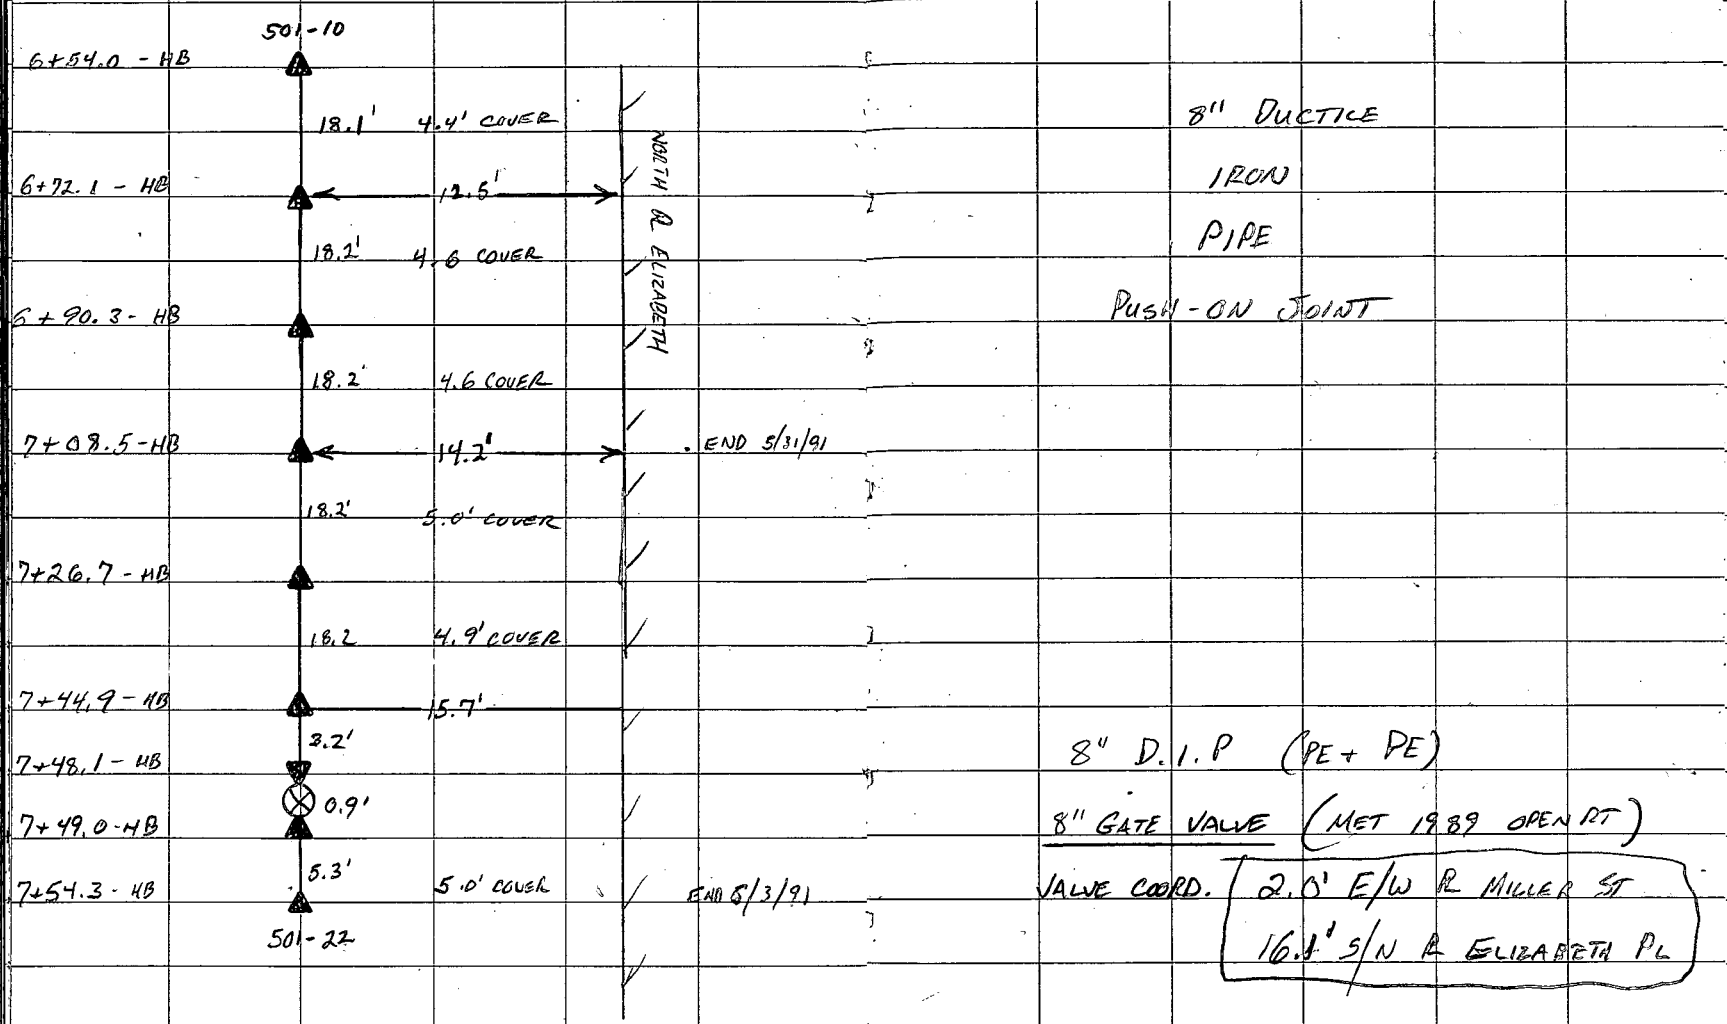 501-10
6+54.0 - HB
18.1' 4.4' COVER
6+72.1 - HB 12.5'
18.2' 4.6 COVER
6+90.3 - HB
18.2' 4.6 COVER
7+08.5-HB 14.2' END 5/31/91
18.2' 5.0' COVER
7+26.7 - HB
18.2 4.9' COVER
7+44.9 - HB 15.7'
3.2'
7+48.1 - HB
0.9'
7+49.0-HB
5.3'
7+54.3 - HB 5.0' COVER END 5/3/91
501-22
NORTH ELIZABETH
8" DUCTILE
IRON
PIPE
PUSH-ON JOINT
8" D.I.P (PE + PE)
8" GATE VALVE (MET 1989 OPEN RT)
VALVE COORD. 2.0' E/W MILLER ST
16.1' S/N ELIZABETH PL